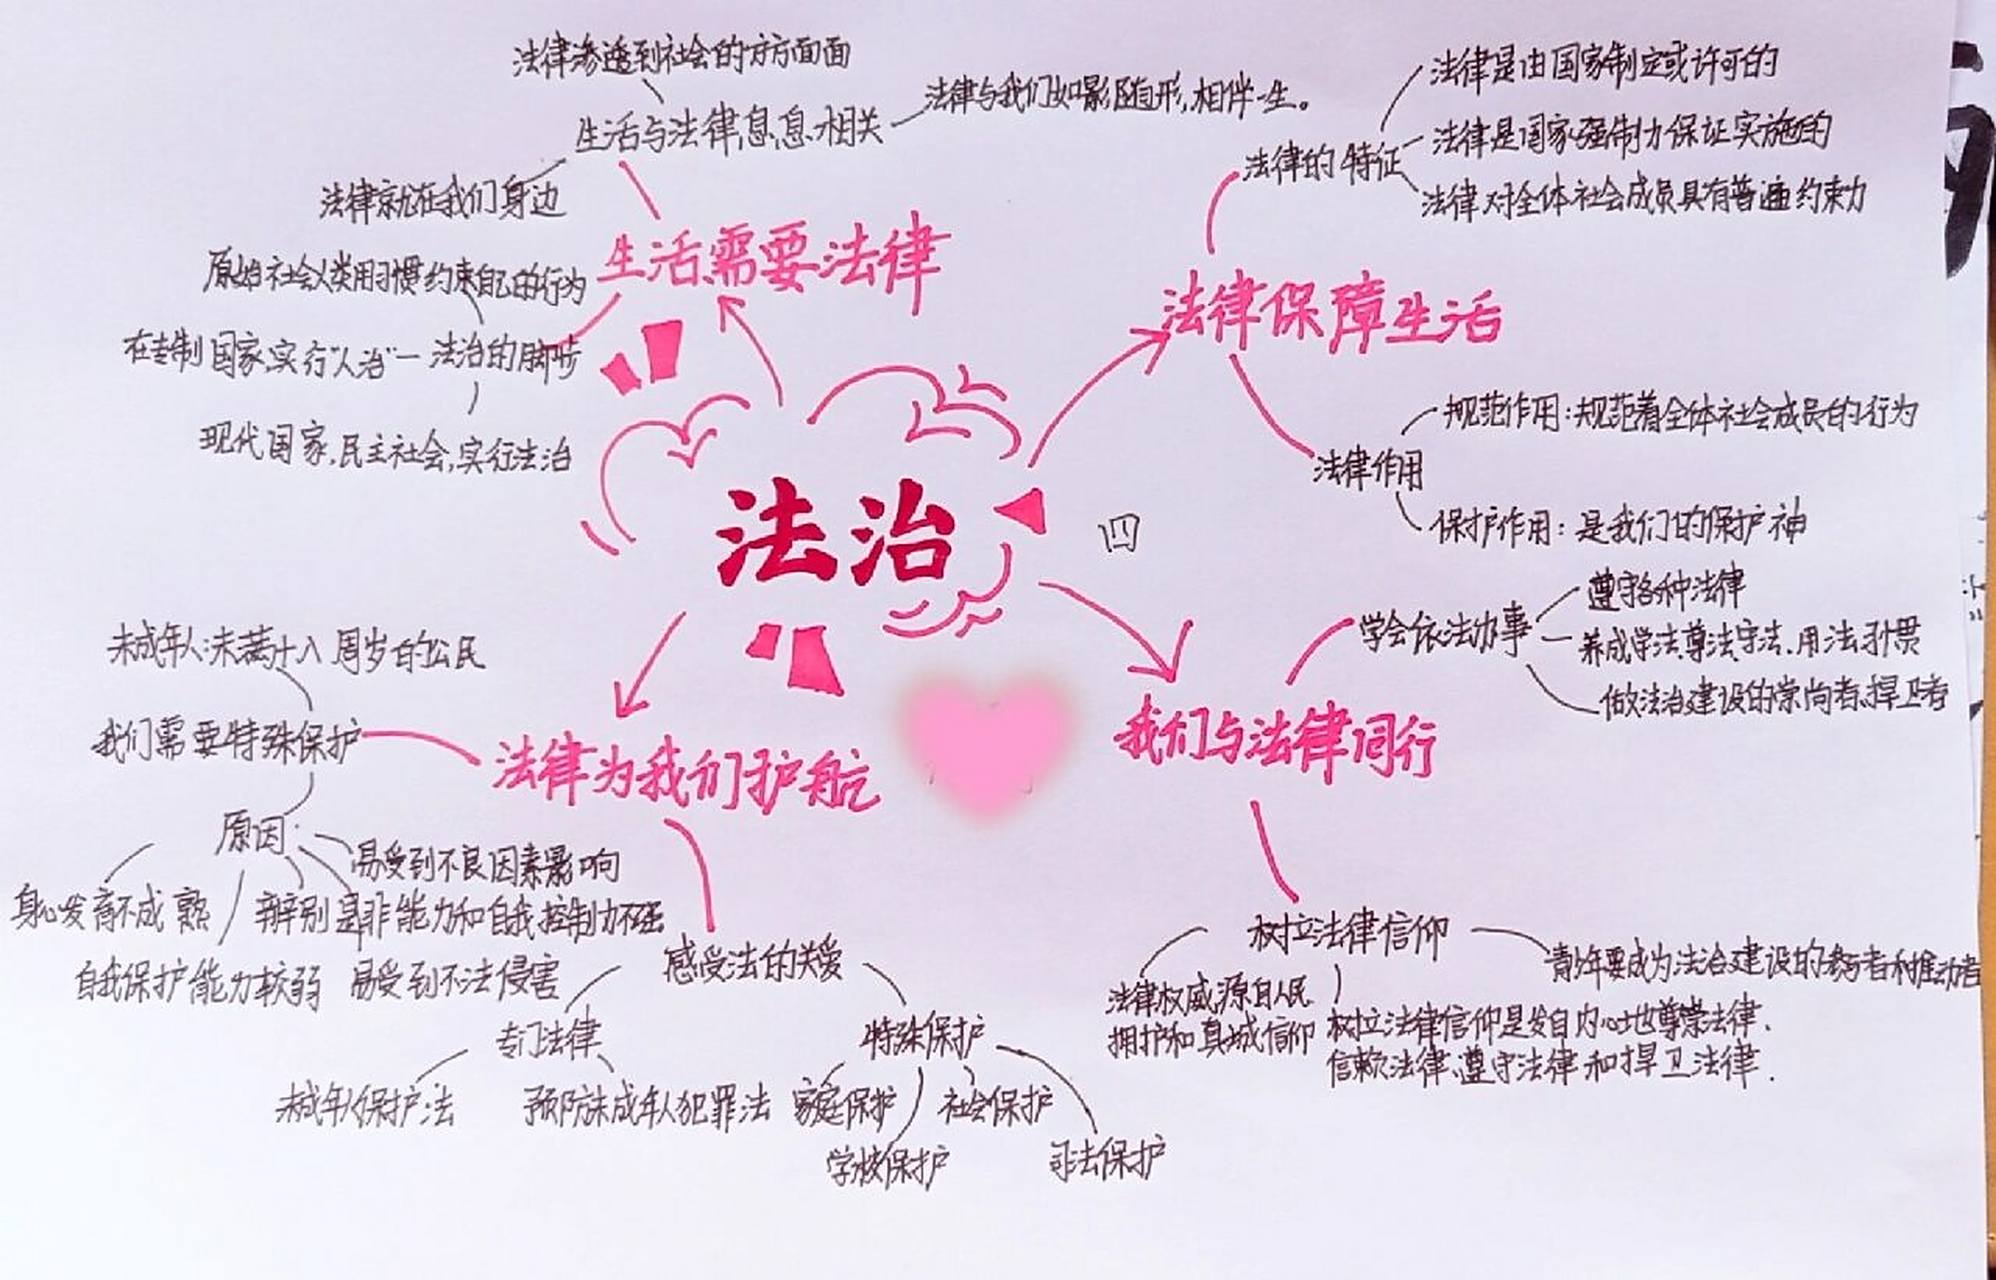 法律渗透到社会的方方面面
生活与法律息息相关
法律与我们如影随形,相伴一生。
法律就在我们身边
生活需要法律
原始社会人类用习惯约束自己的行为
在专制国家,实行"人治"
法治的脚步
现代国家,民主社会,实行法治
法律保障生活
法律的特征
法律是由国家制定或许可的
法律是国家强制力保证实施的
法律对全体社会成员具有普遍约束力
法律作用
规范作用:规范着全体社会成员的行为
保护作用:是我们的保护神
法治
四
法律为我们护航
未成年人:未满十八周岁的公民
我们需要特殊保护
原因:
易受到不良因素影响
身心发育不成熟
辨别是非能力和自我控制力不强
自我保护能力较弱
易受到不法侵害
感受法的关爱
专门法律
未成年人保护法
预防未成年人犯罪法
特殊保护
家庭保护
学校保护
社会保护
司法保护
我们与法律同行
学会依法办事
遵守各种法律
养成学法、尊法、守法、用法习惯
做法治建设的崇尚者、捍卫者
树立法律信仰
青少年要成为法治建设的参与者和推动者
法律权威,源自人民
拥护和真城信仰
树立法律信仰是发自内心地尊崇法律、
信赖法律、遵守法律和捍卫法律.